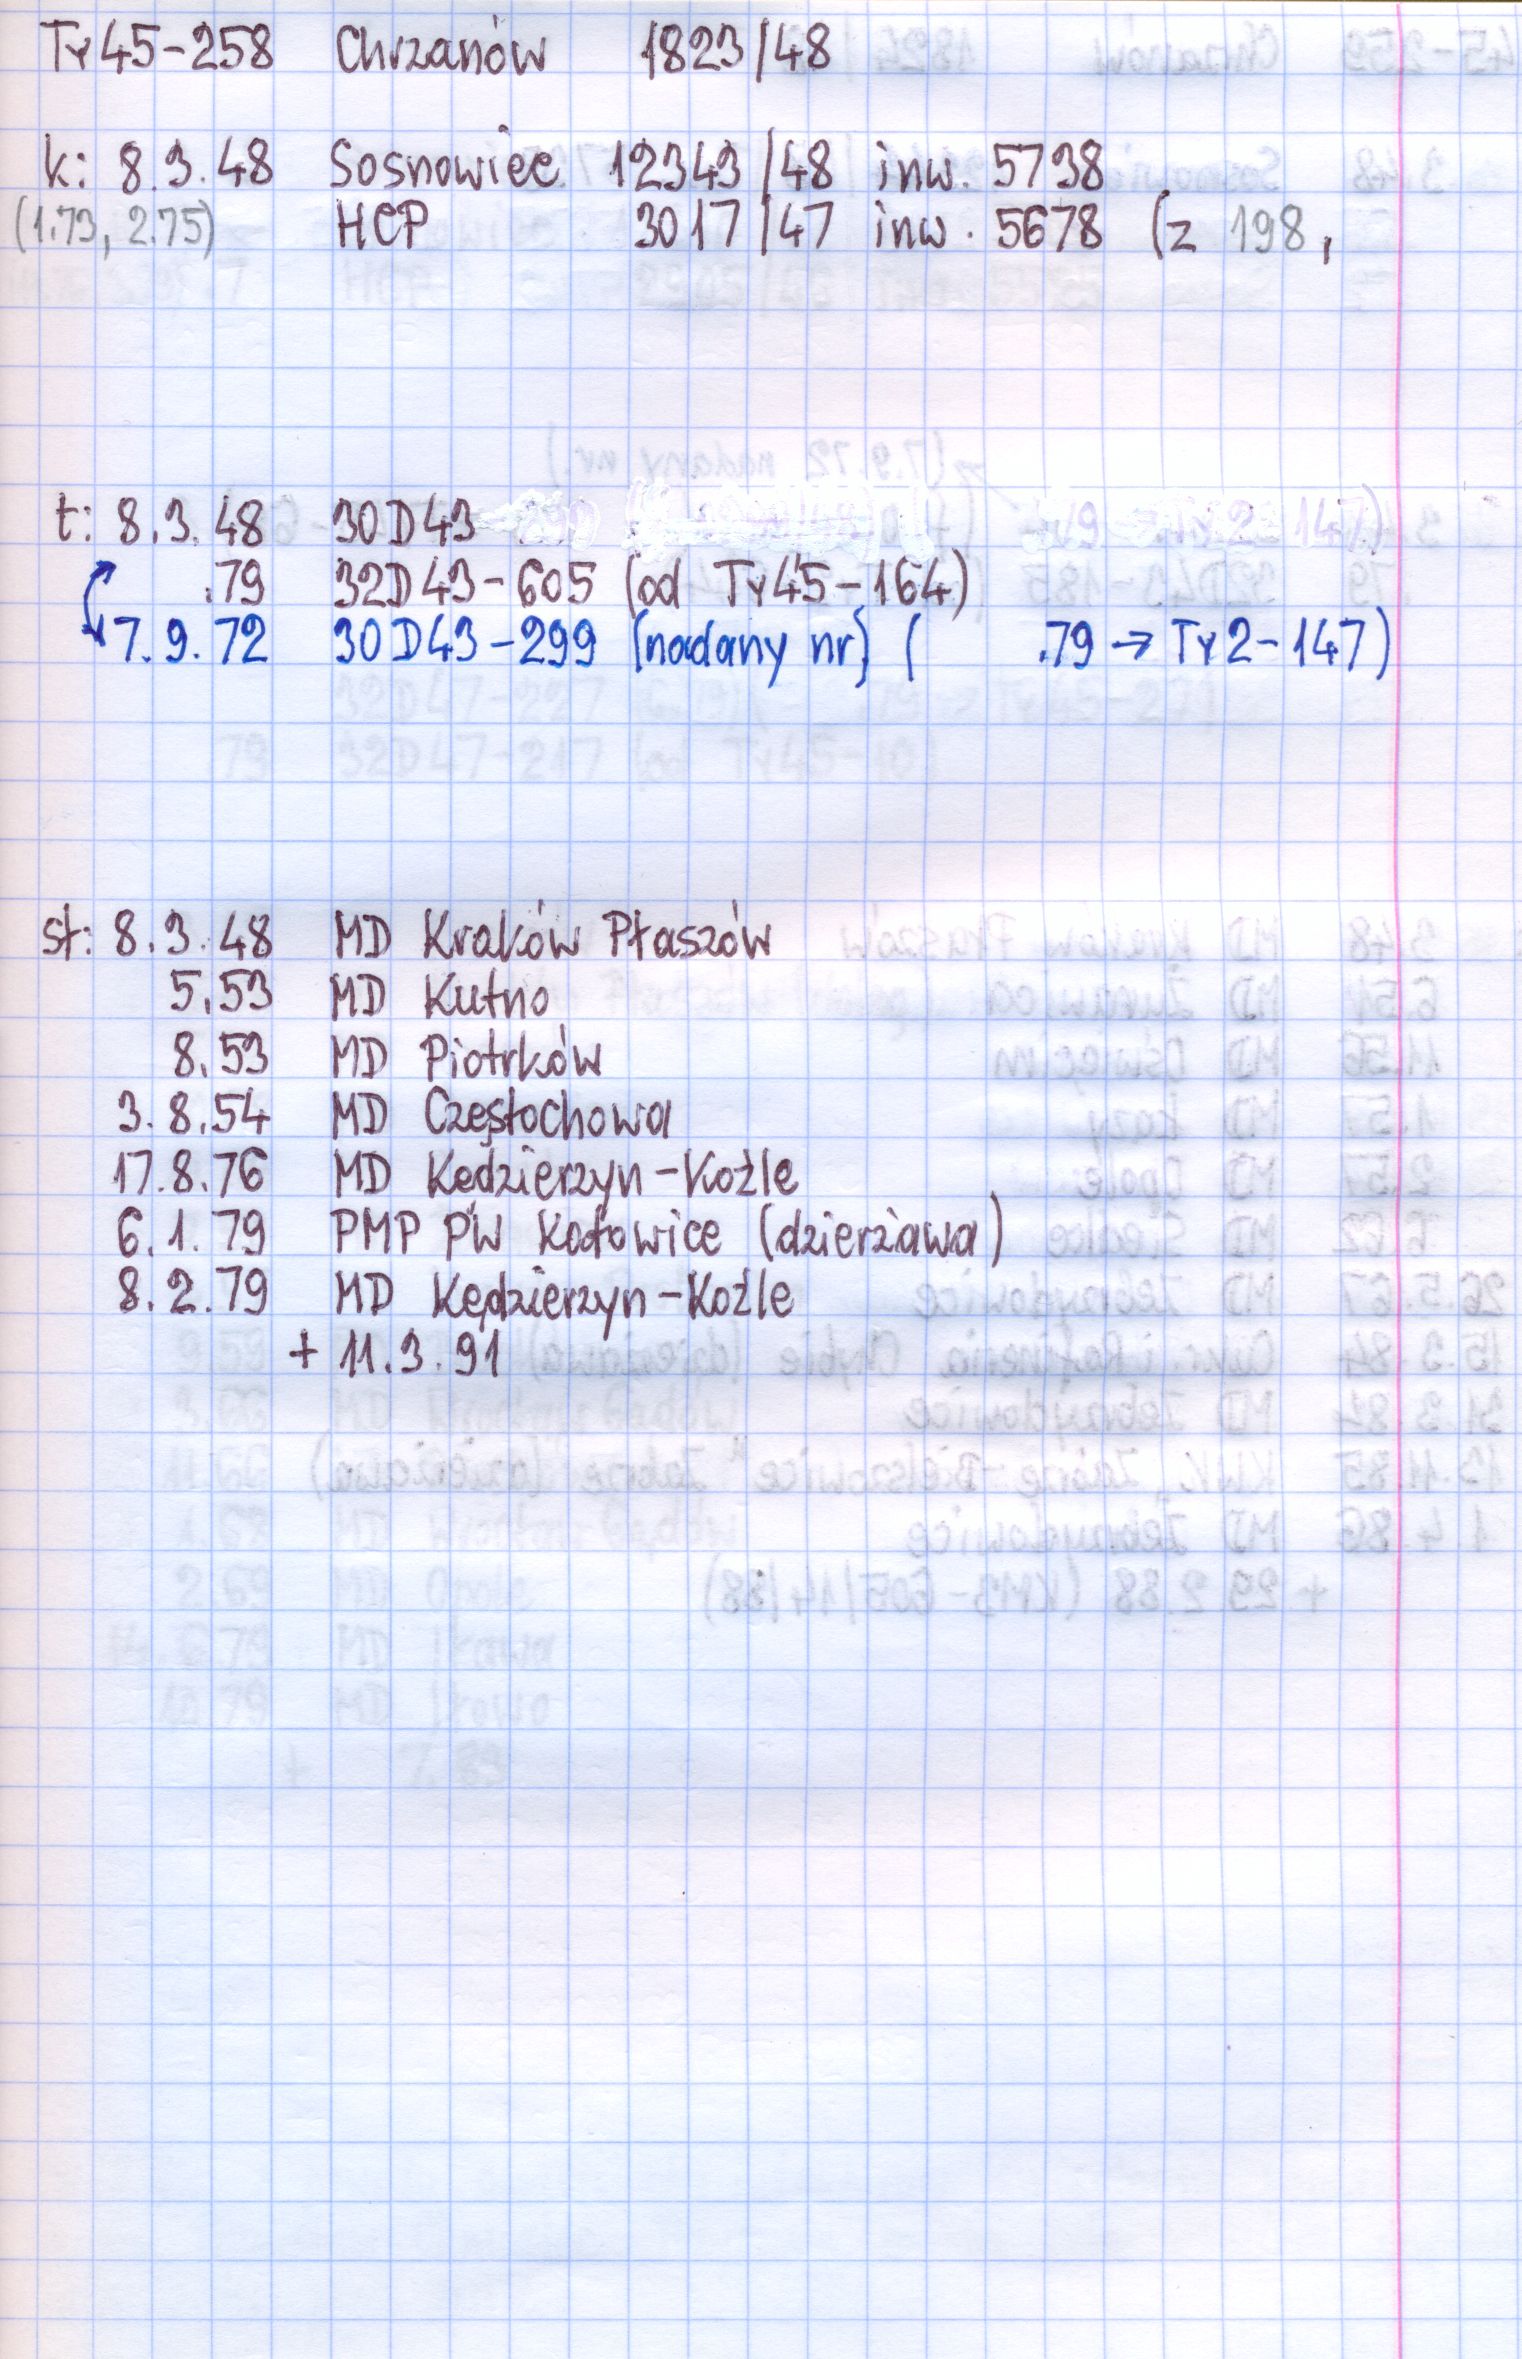 Ty45-258 Chrzanów 1823/48
k: 8.3.48 Sosnowiec 12343/48 inw. 5738
(1.73, 2.75) HCP 3017/47 inw. 5678 (z 198,
t: 8.3.48 30D43
.79 32D43-605 (od Ty45-164)
7.9.72 30D43-299 (nadany nr) ( .79 → Ty2-147)
st: 8.3.48 MD Kraków Płaszów
5.53 MD Kutno
8.53 MD Piotrków
3.8.54 MD Częstochowa
17.8.76 MD Kędzierzyn-Koźle
6.1.79 PMP PW Katowice (dzierżawa)
8.2.79 MD Kędzierzyn-Koźle
+ 11.3.91